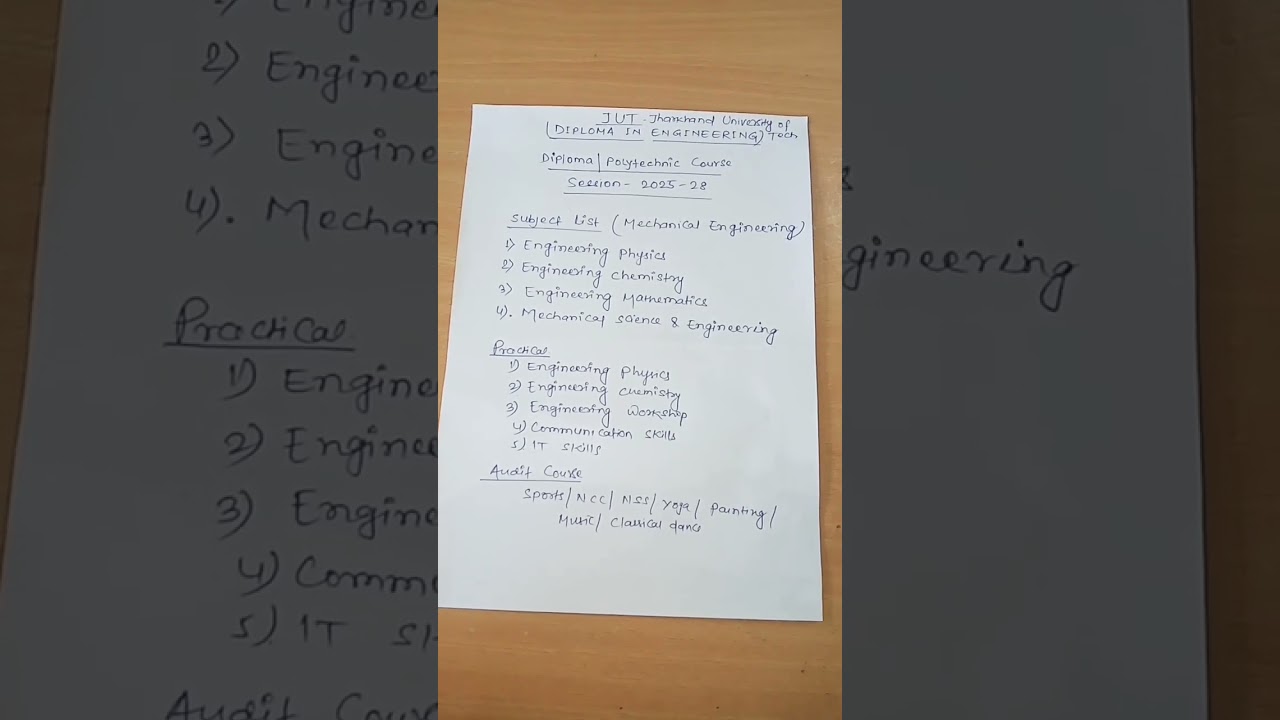 JUT - Jharkhand University of
(DIPLOMA IN ENGINEERING) Tech
Diploma/Polytechnic Course
Session - 2025-28
Subject List (Mechanical Engineering)
1) Engineering Physics
2) Engineering Chemistry
3) Engineering Mathematics
4). Mechanical Science & Engineering
Practical
1) Engineering Physics
2) Engineering Chemistry
3) Engineering Workshop
4) Communication Skills
5) IT Skills
Audit Course
Sports/NCC/NSS/Yoga/Painting/
Music/Classical danc